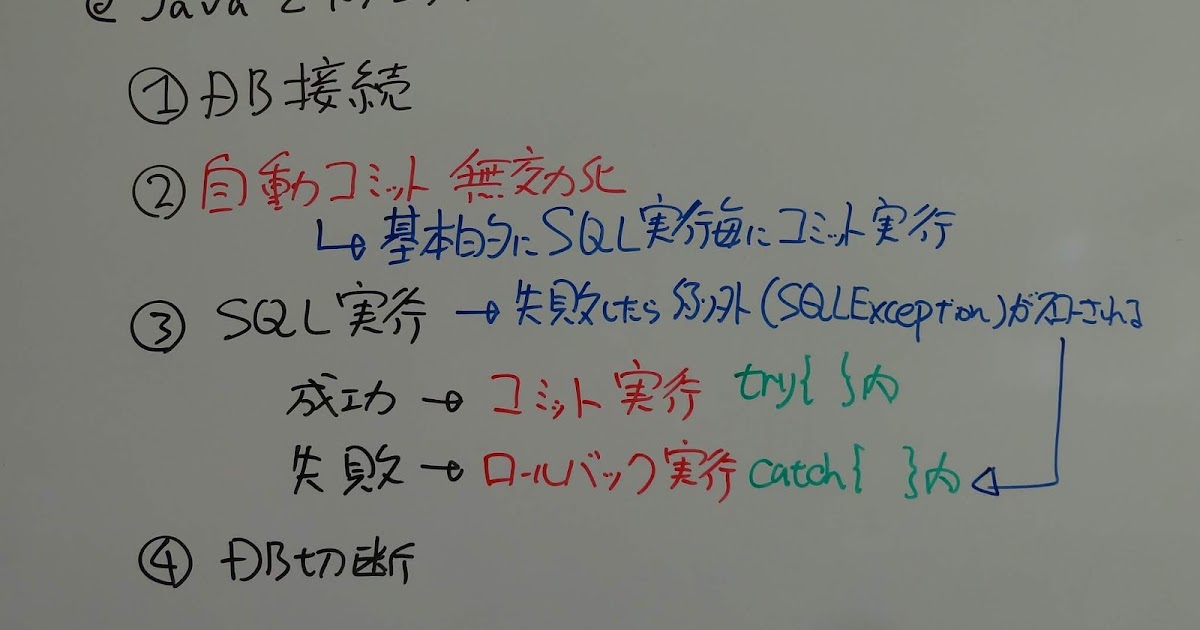 @ Java
① DB接続
② 自動コミット 無効化
↳ 基本的にSQL実行毎にコミット実行
③ SQL実行 → 失敗したら例外(SQLException)がスローされる
成功 → コミット実行 try{ }内
失敗 → ロールバック実行 catch{ }内
④ DB切断